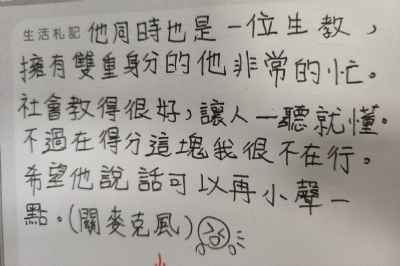 生活札記 他同時也是一位生教，
擁有雙重身分的他非常的忙。
社會教得很好，讓人一聽就懂。
不過在得分這塊我很不在行。
希望他說話可以再小聲一
點。(關麥克風)